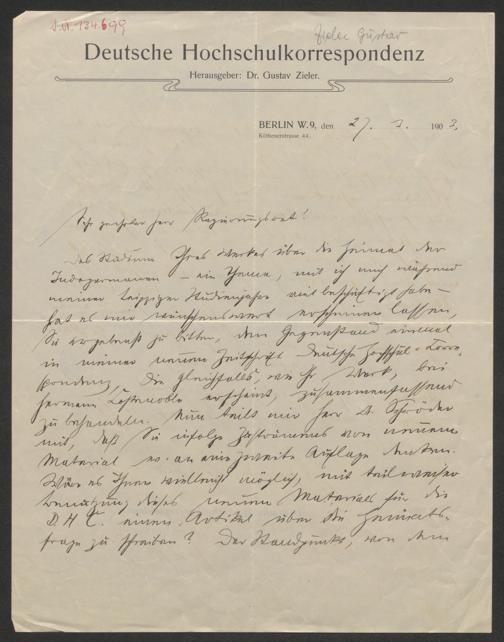 I.N.-134.699
Zieler Gustav
Deutsche Hochschulkorrespondenz
Herausgeber: Dr. Gustav Zieler.
BERLIN W. 9, den 27. 1. 1903.
Köthenerstrasse 44.
Sehr geehrter Herr Regierungsrat!
Das Studium Ihres Werkes über die Heimat der
Indogermanen – ein Thema, mit dem ich mich während
meiner Leipziger Studienjahre viel beschäftigt habe –
hat es mir wünschenswert erscheinen lassen,
Sie ergebenst zu bitten, den Gegenstand einmal
in meiner neuen Zeitschrift Deutsche Hochschul-Korre-
spondenz, die gleichfalls, wie Ihr Werk, bei
Hermann Costenoble erscheint, zusammenfassend
zu behandeln. Nun teilt mir Herr Dr. Schröder
mit, daß Sie infolge Zuströmens von neuem
Material ev. an eine zweite Auflage denken.
Wäre es Ihnen vielleicht möglich, mit teilweiser
Benutzung dieses neuen Materials für die
D.H.C. einen Artikel über die Heimats-
frage zu schreiben? Der Standpunkt, von dem